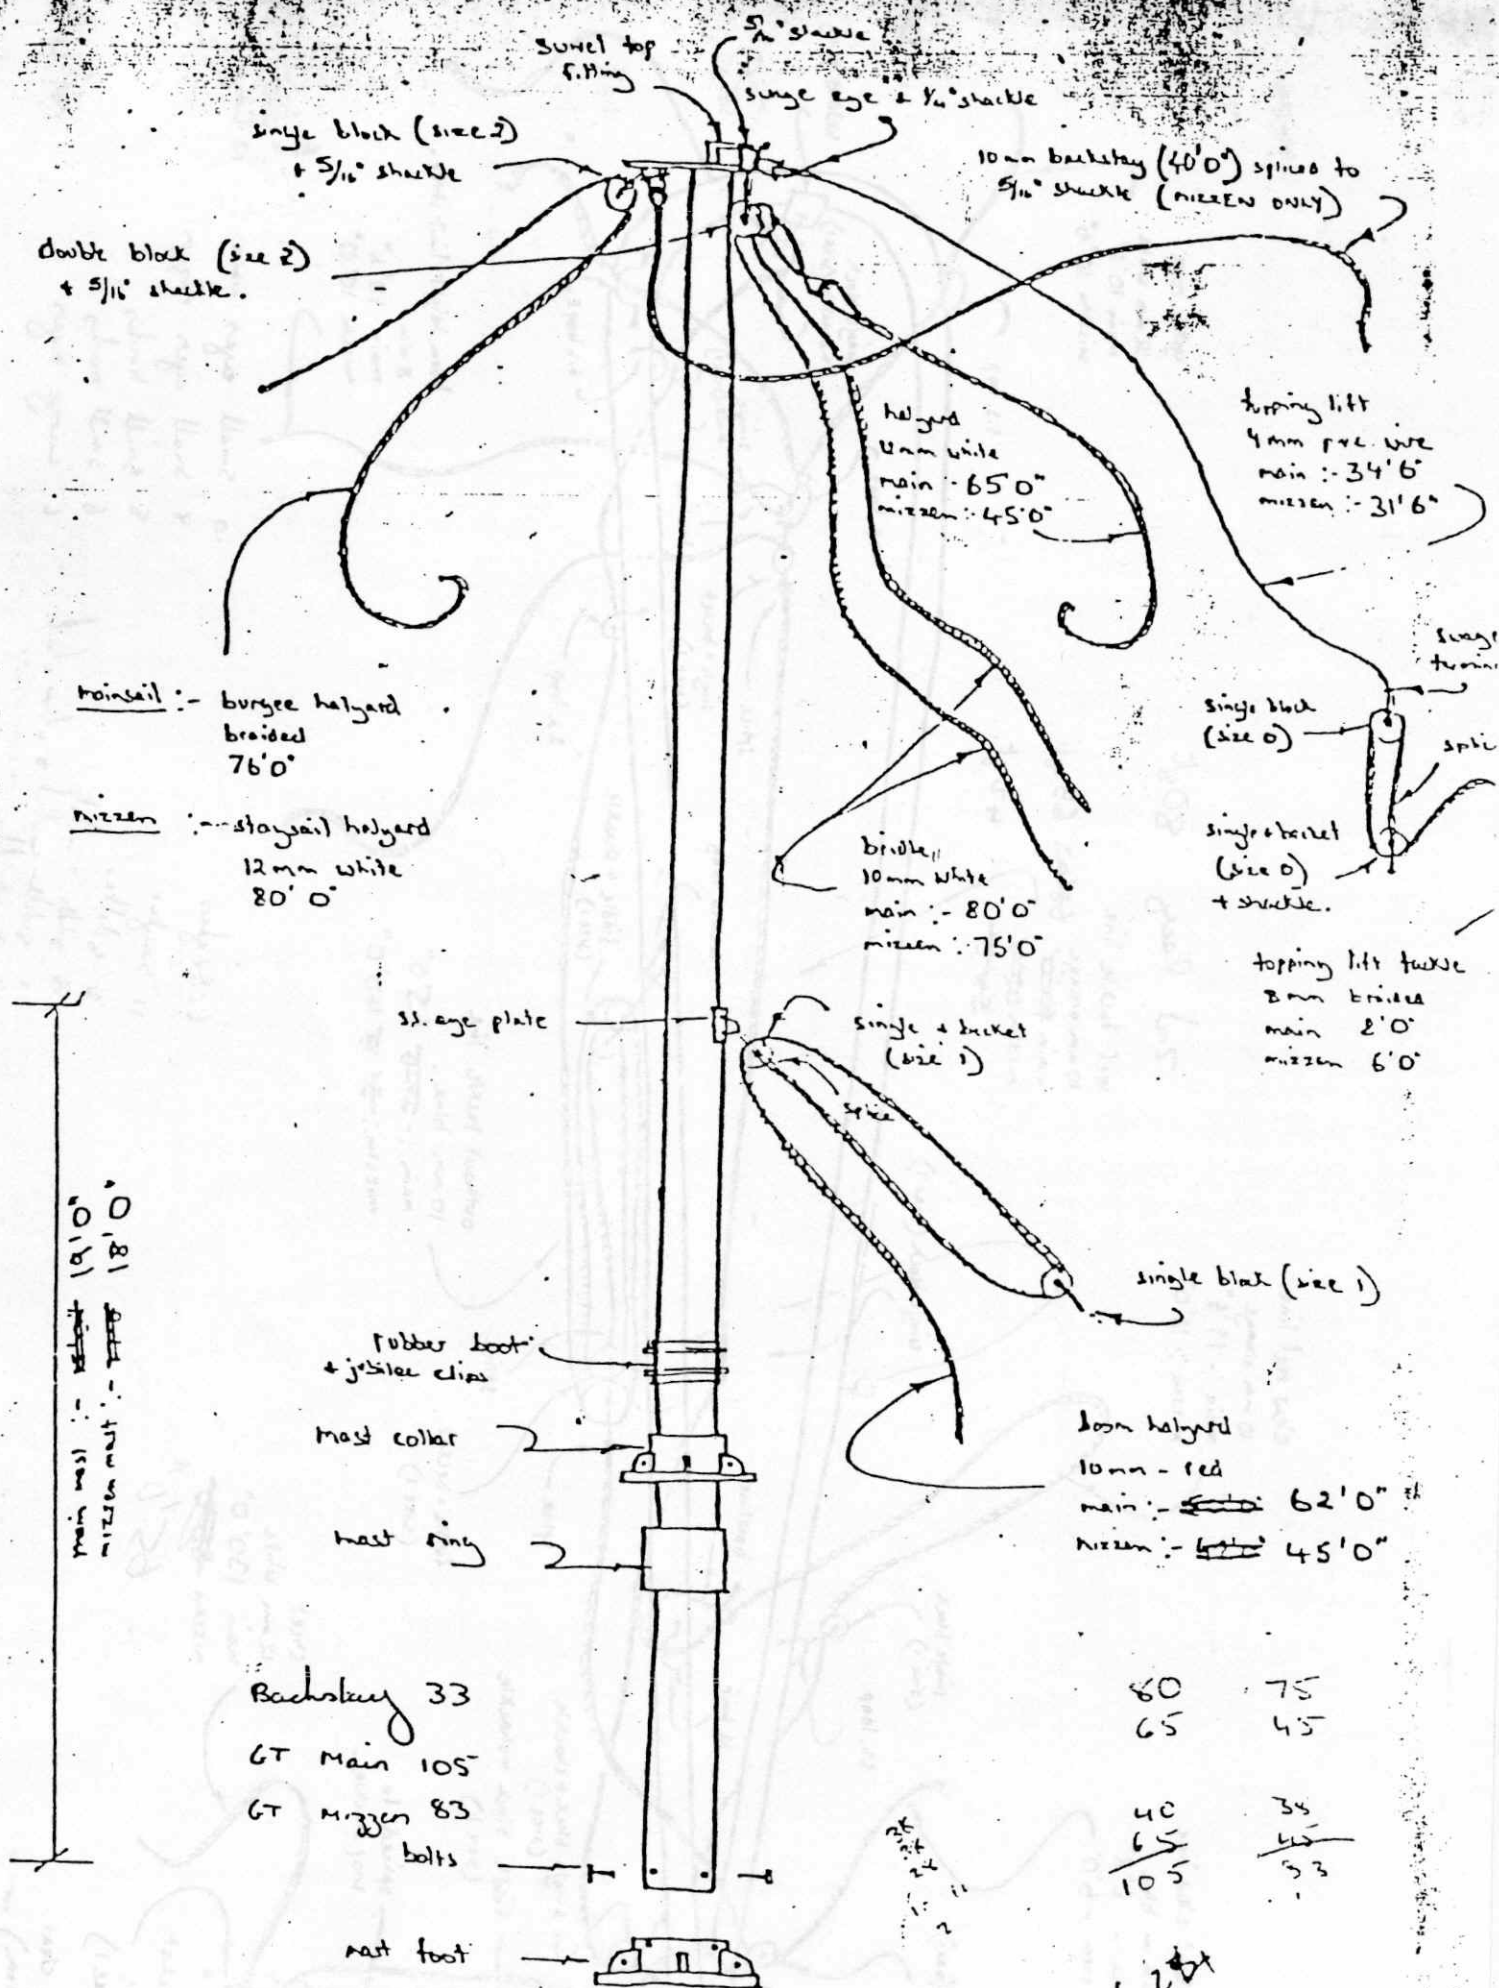 swivel top
fitting
5/16" shackle
swage eye + 1/4" shackle
single block (size 2)
+ 5/16" shackle
10mm backstay (40'0") spliced to
5/16" shackle (MIZZEN ONLY)
double block (size 2)
+ 5/16" shackle.
halyard
12mm white
main :- 65'0"
mizzen :- 45'0"
topping lift
4mm pvc wire
main :- 34'6"
mizzen :- 31'6"
swage
termin
single block
(size 0)
splic
single + becket
(size 0)
+ shackle.
mainsail :- burgee halyard
braided
76'0"
mizzen :- staysail halyard
12mm white
80'0"
bridle
10mm white
main :- 80'0"
mizzen :- 75'0"
topping lift tackle
8mm braided
main 8'0"
mizzen 6'0"
s.s. eye plate
single + becket
(size 1)
splice
mizzen mast :- 18'0"
main mast :- 19'0"
single block (size 1)
rubber boot
+ jubilee clips
mast collar
boom halyard
10mm - red
main :- 62'0"
mizzen :- 45'0"
mast ring
Backstay 33
GT Main 105
GT Mizzen 83
bolts
80 75
65 45
40 38
65 45
105 83
mast foot